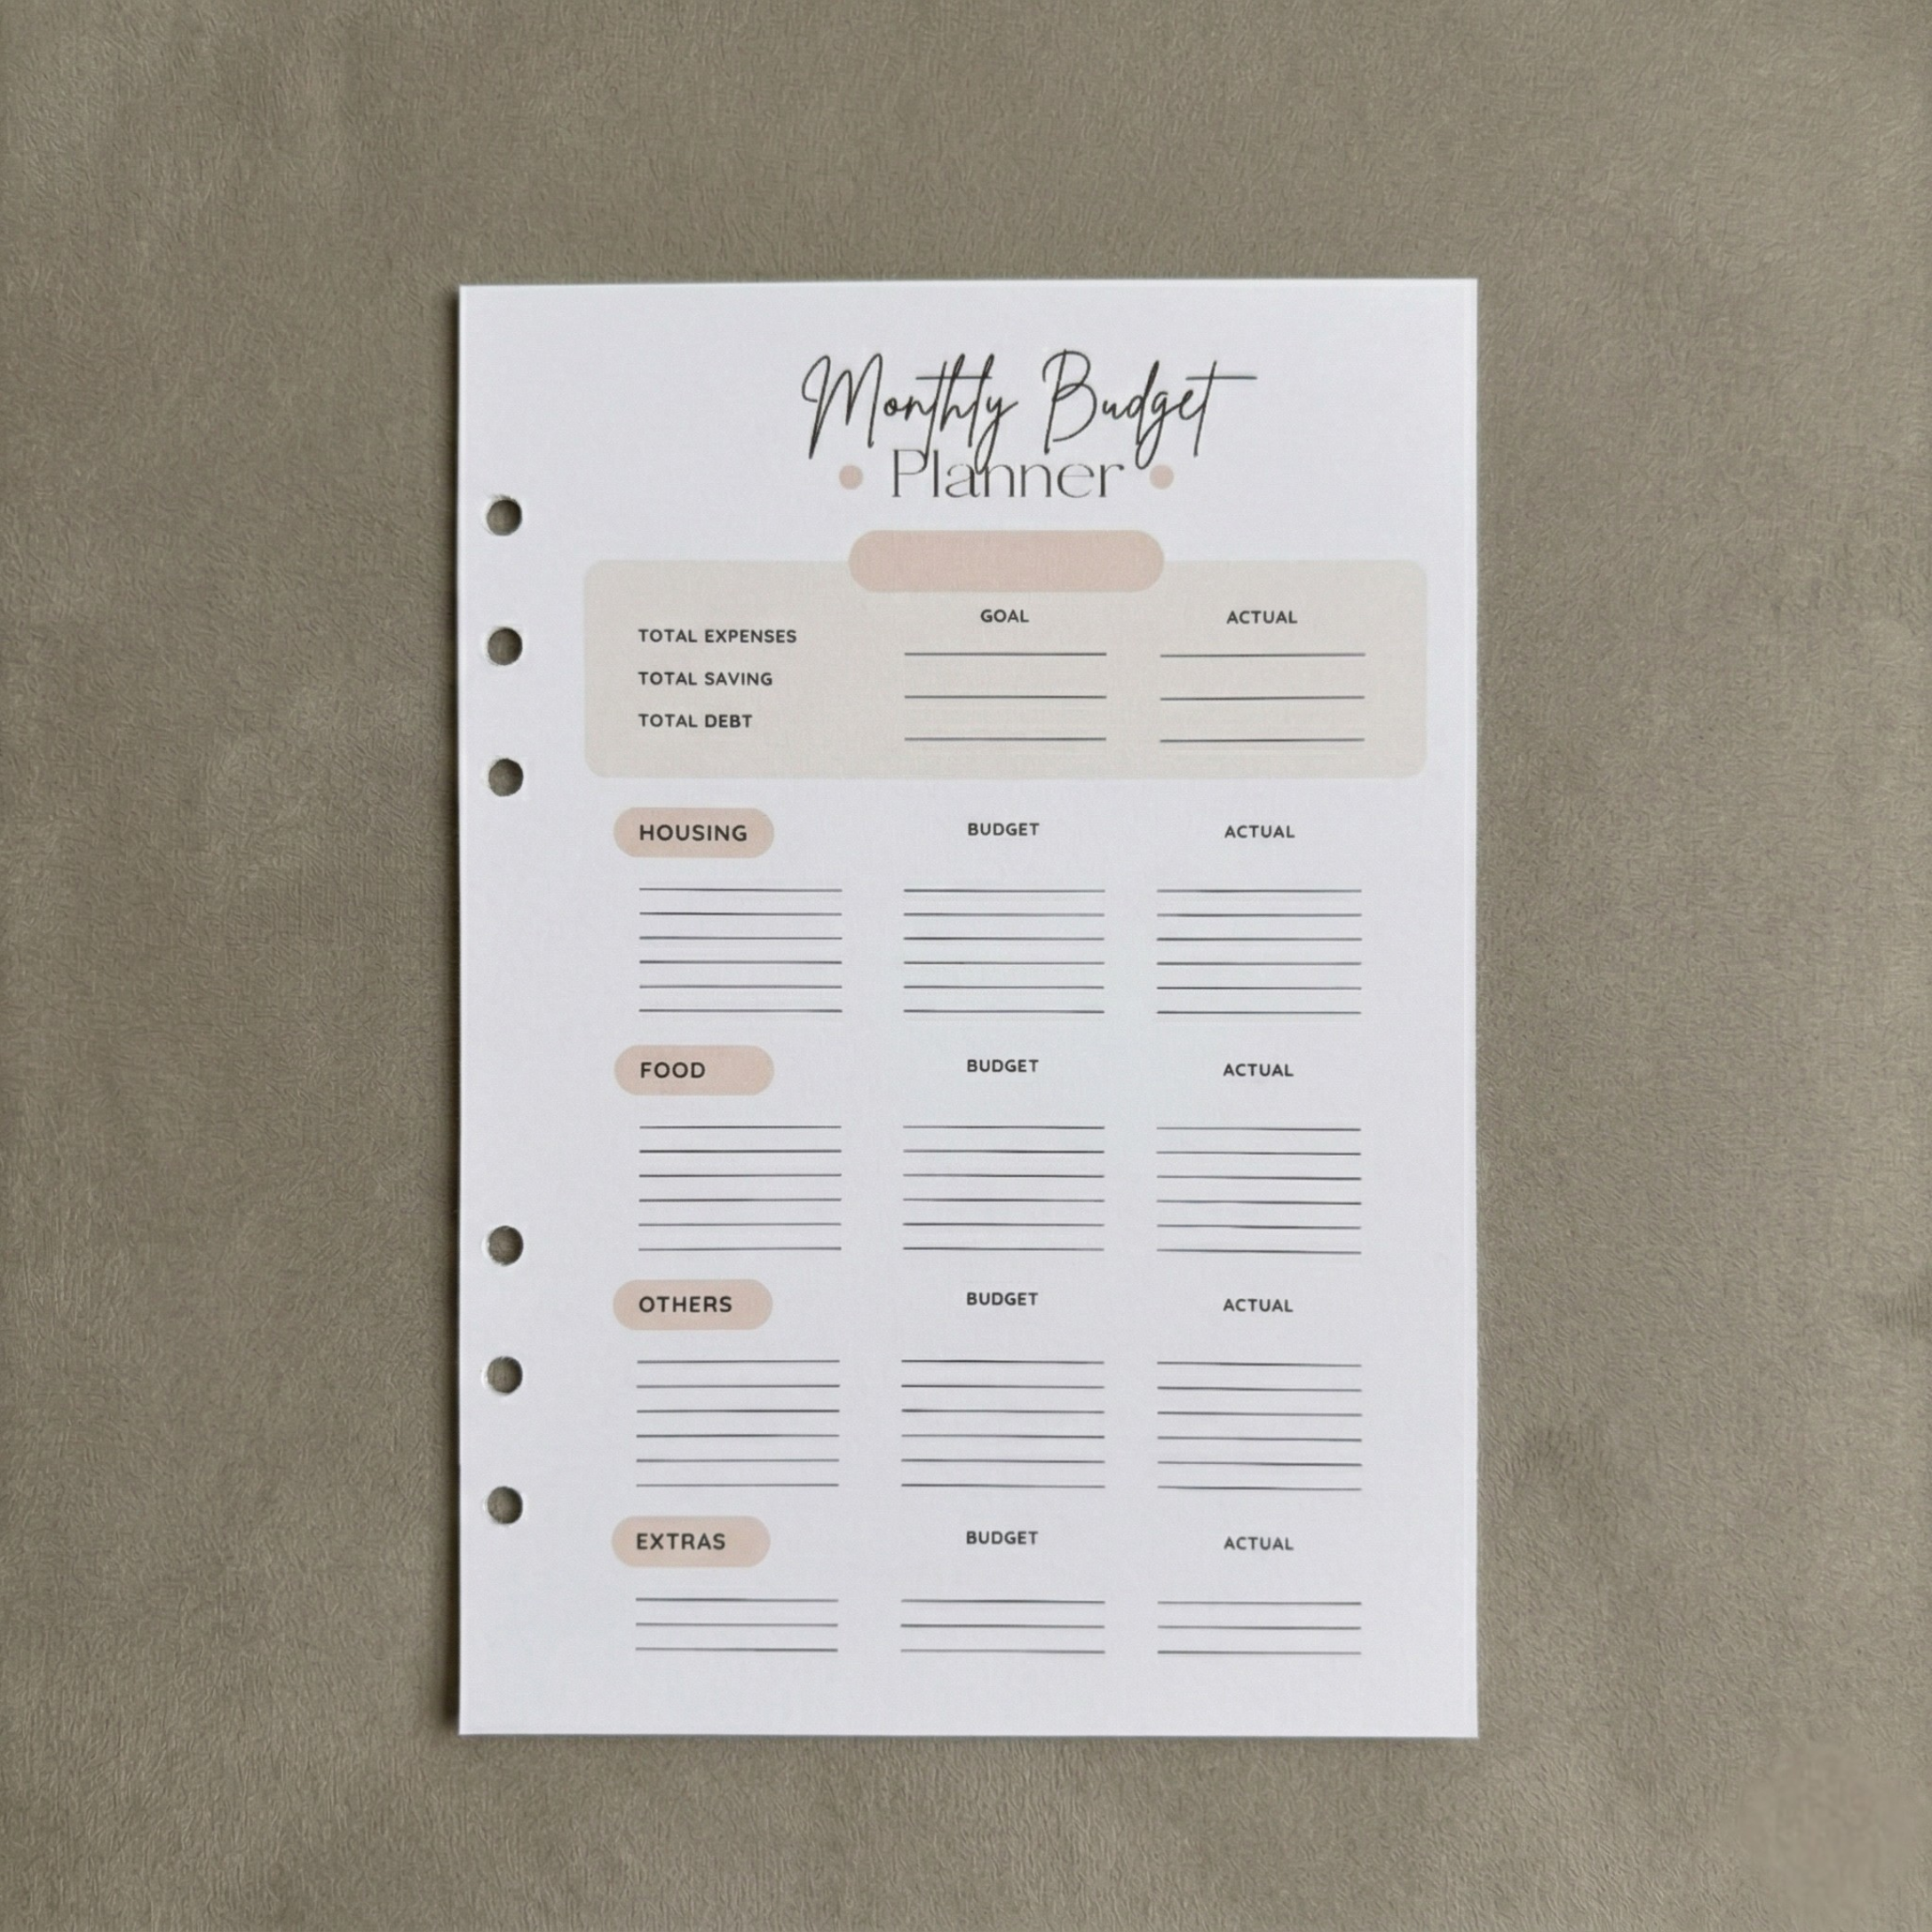 Monthly Budget
Planner
GOAL ACTUAL
TOTAL EXPENSES
TOTAL SAVING
TOTAL DEBT
HOUSING BUDGET ACTUAL
FOOD BUDGET ACTUAL
OTHERS BUDGET ACTUAL
EXTRAS BUDGET ACTUAL